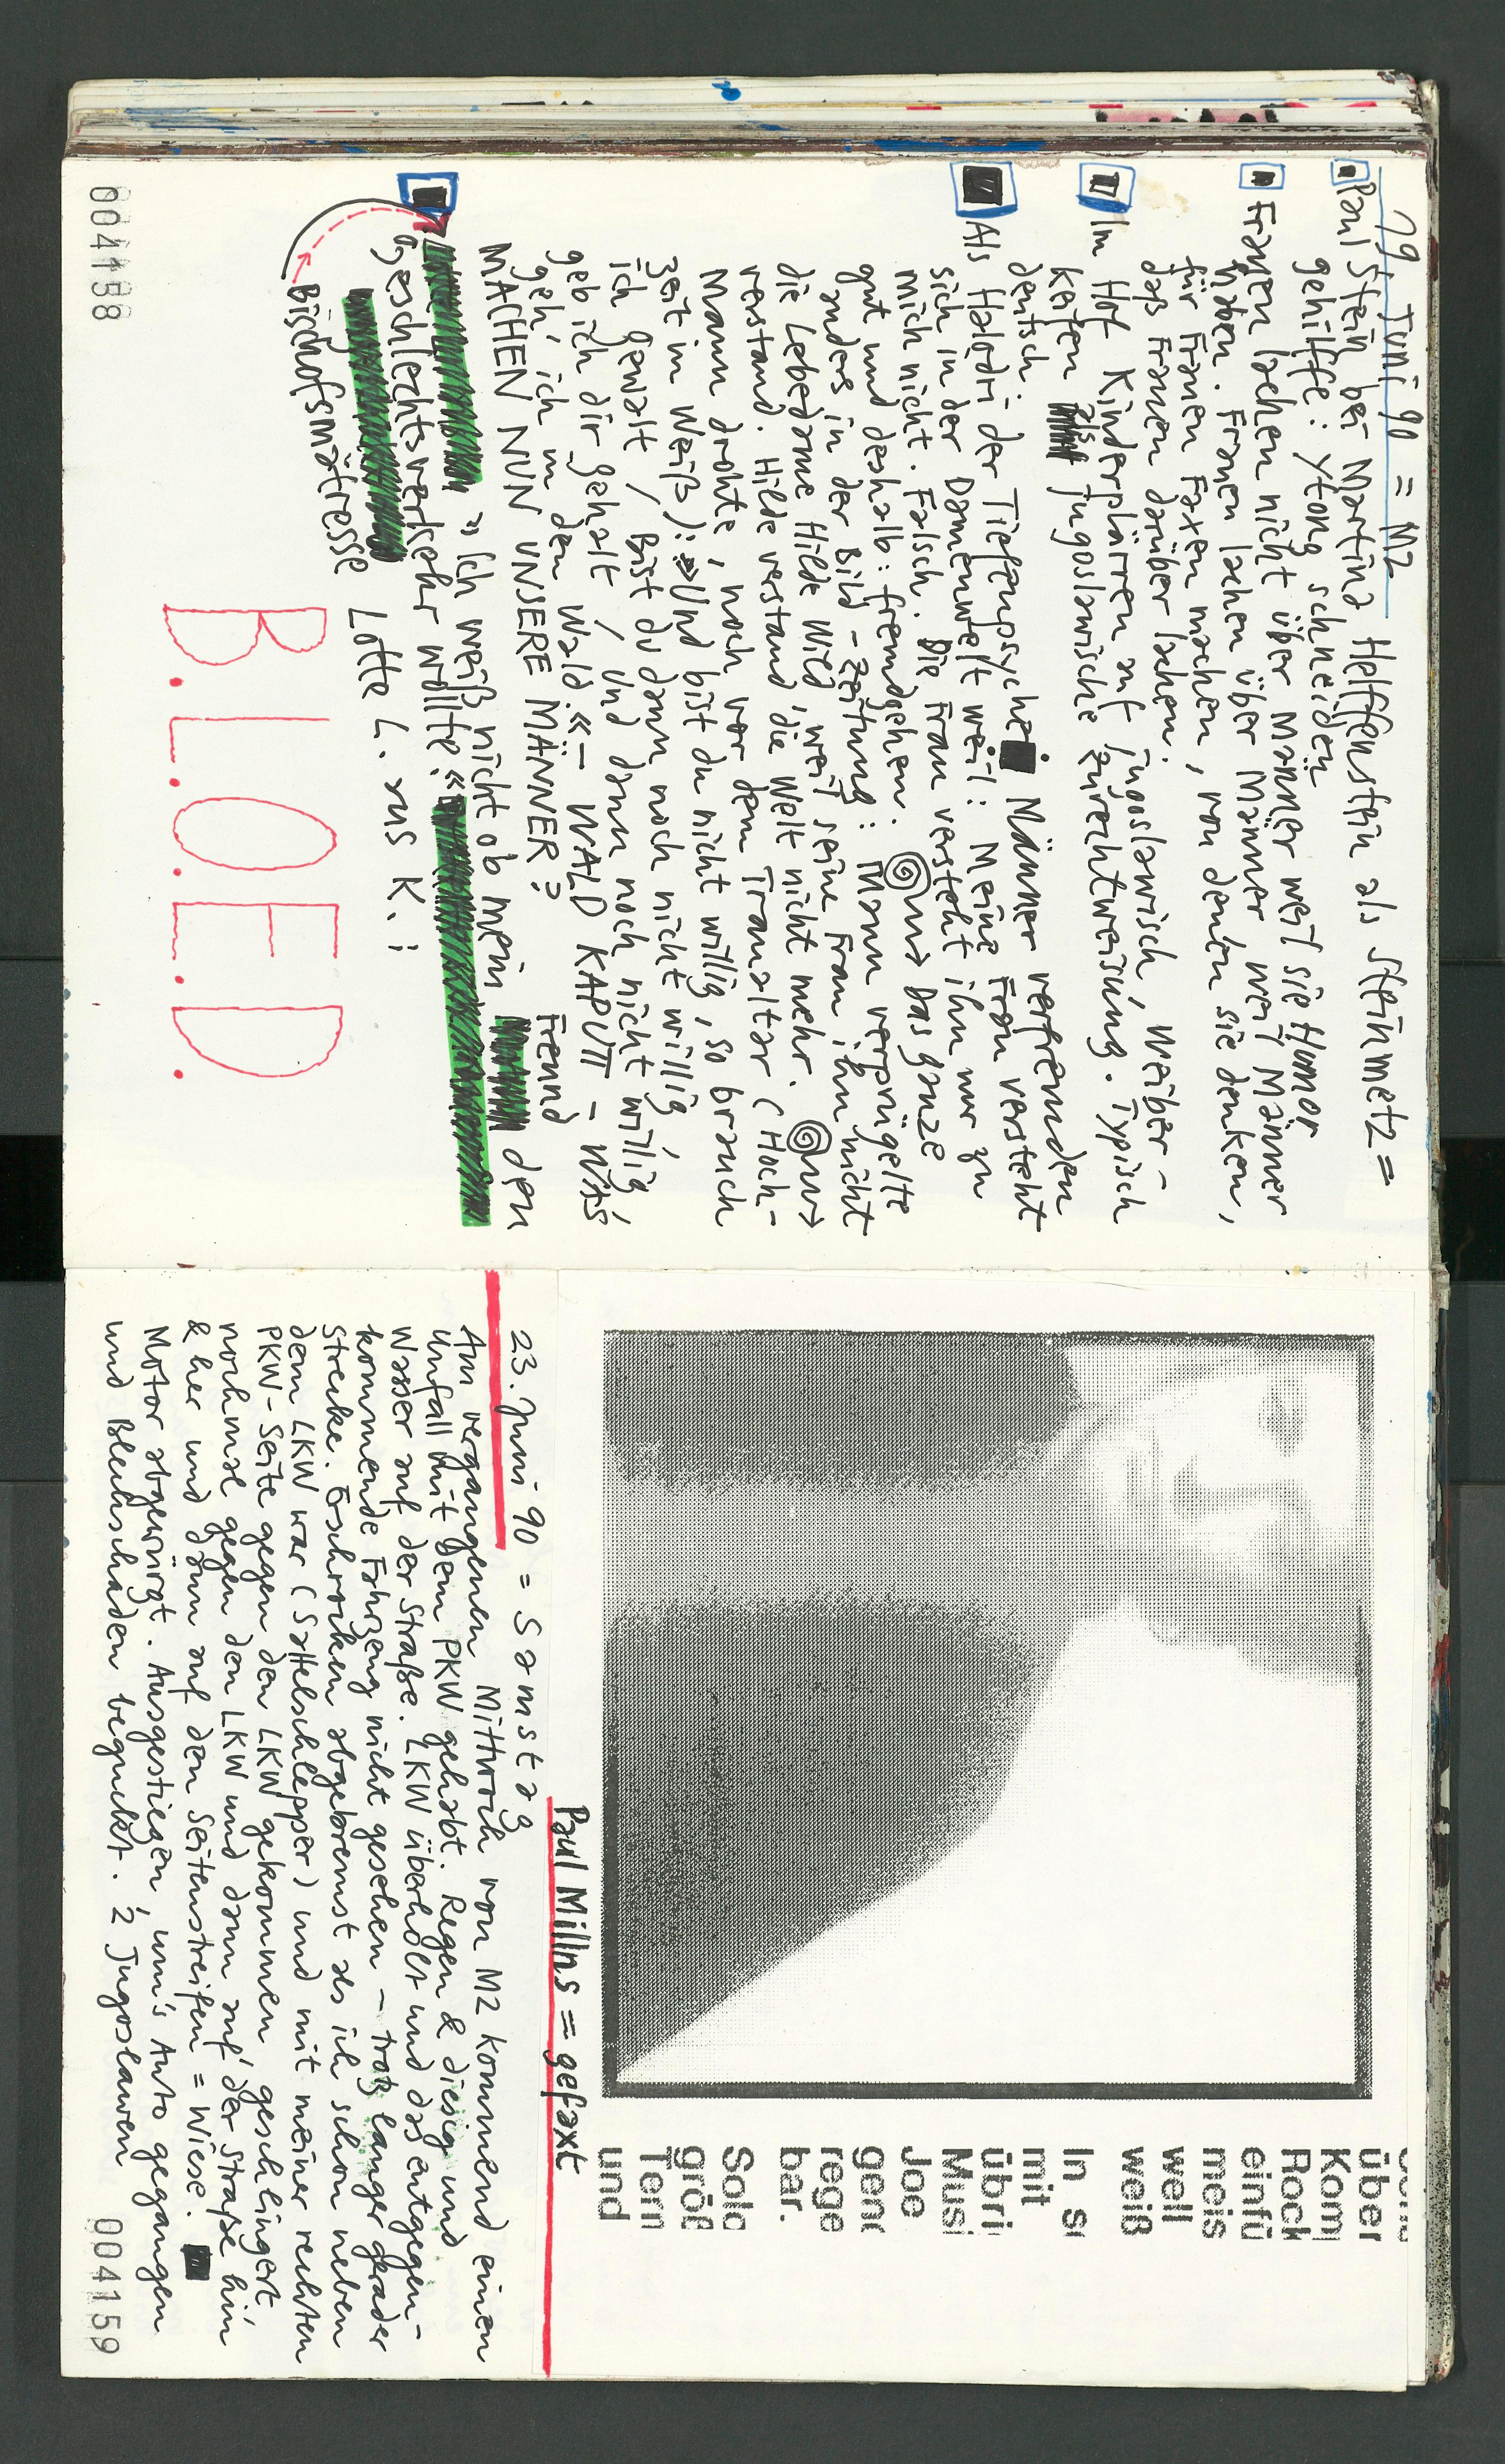 19. Juni 90 = MZ
Paul Stein bei Martina Helffenstein als Steinmetz=
gehilffe: Ytong schneiden.
Frauen lachen nicht über Männer weil sie Humor
haben. Frauen lachen über Männer, weil Männer
für Frauen Faxen machen, von denen sie denken,
daß Frauen darüber lachen.
Im Hof Kinderplärren auf jugoslawisch, Weiber-
keifen als jugoslawische Zurechtweisung. Typisch
deutsch.
Als Halodri der Tiefenpsyche Männer verfremden
sich in der Damenwelt weil: Meine Frau versteht
mich nicht. Falsch. Die Frau versteht ihn nur zu
gut und deshalb: fremdgehen. Das ganze
anders in der Bild-Zeitung: Mann verprügelte
die Lebedame Hilde Wild, weil seine Frau ihn nicht
verstand. Hilde verstand die Welt nicht mehr.
Mann drohte, noch vor dem Traualtar (Hoch-
zeit in Weiß): »Und bist du nicht willig, so brauch
ich Gewalt / Bist du dann noch nicht willig,
geb ich dir gehalt / Und dann noch nicht willig,
geh' ich in den Wald.« – WALD KAPUTT – WAS
MACHEN NUN UNSERE MÄNNER?
»Ich weiß nicht ob mein Freund den
Geschlechtsverkehr wollte.«
Lotte L. aus K.:
Bischofsmätresse
B.L.O.E.D.
004158
über
Kom
Rock
einfü
meis
well
weiß
In s
mit
übri
Musi
Joe
gend
rege
bar.
Solo
größ
Tern
und
Paul Millns = gefaxt
23. Juni 90 = Samstag
Am vergangenen Mittwoch von MZ kommend einen
Unfall mit dem PKW gehabt. Regen & diesig und
Wasser auf der Straße. LKW überholt und das entgegen-
kommende Fahrzeug nicht gesehen – trotz langer gerader
Strecke. Erschrocken abgebremst als ich schon neben
dem LKW war (Sattelschlepper) und mit meiner rechten
PKW-Seite gegen den LKW gekommen, geschlingert,
nochmal gegen den LKW und dann auf der Straße hin
& her und dann auf den Seitenstreifen = Wiese.
Motor abgewürgt. Ausgestiegen, um's Auto gegangen
und Blechschaden beguckt. ½ Jugoslawen
004159